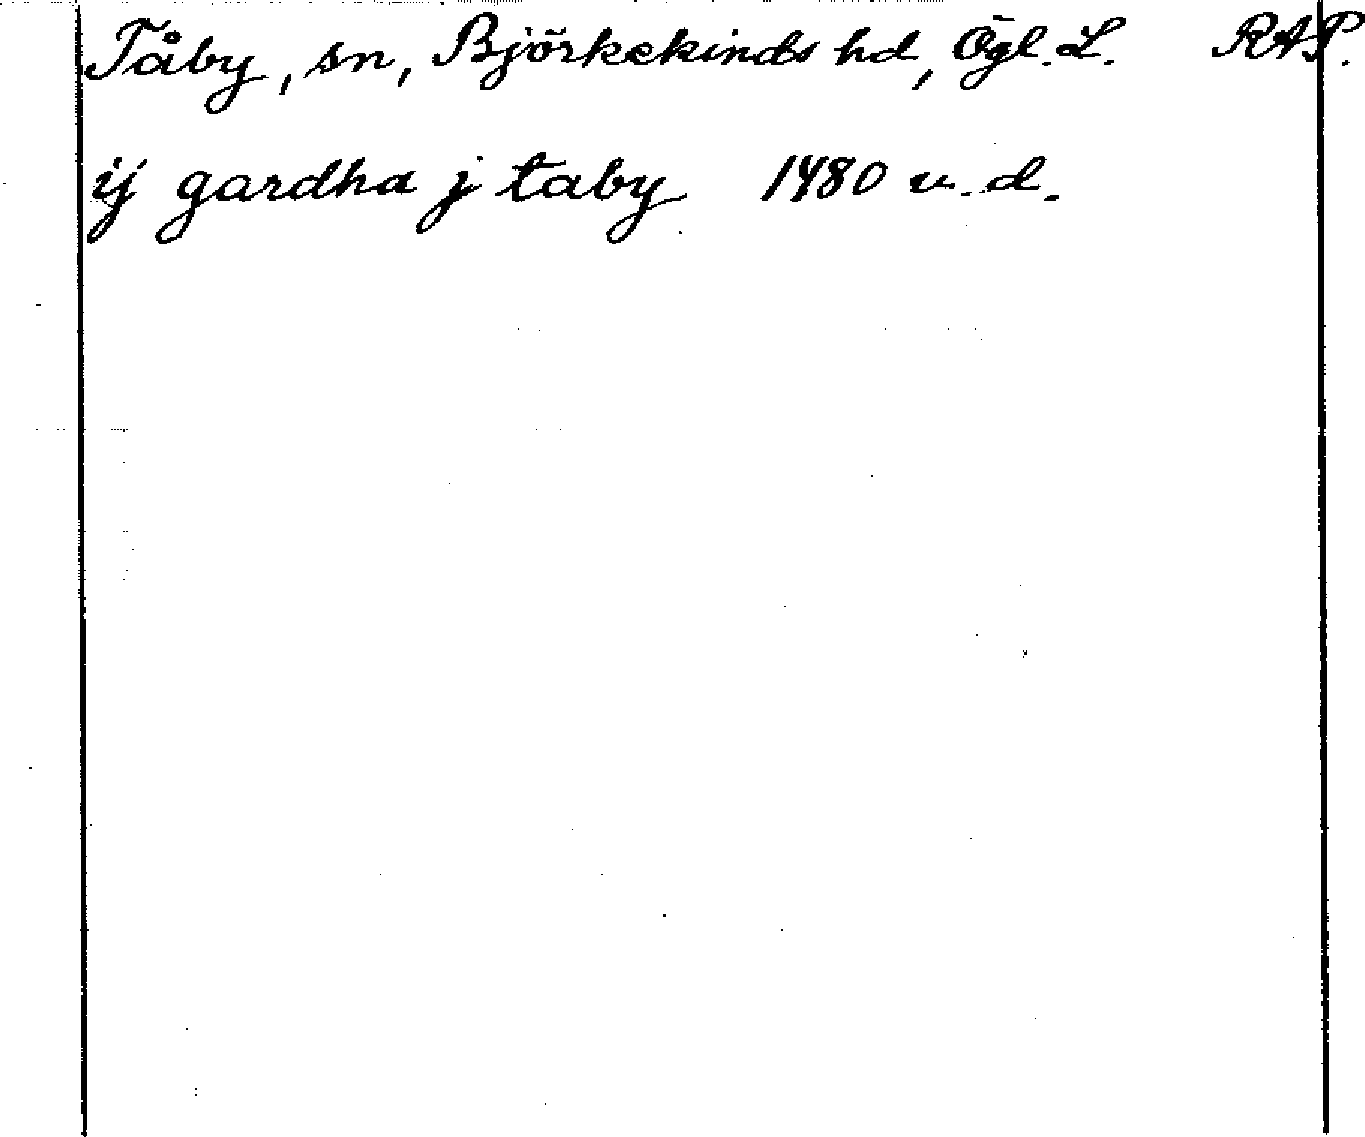 Tåby, sn, Björkekinds hd, Ögl. L. RAP.
ij gardha j taby 1480 u.d.